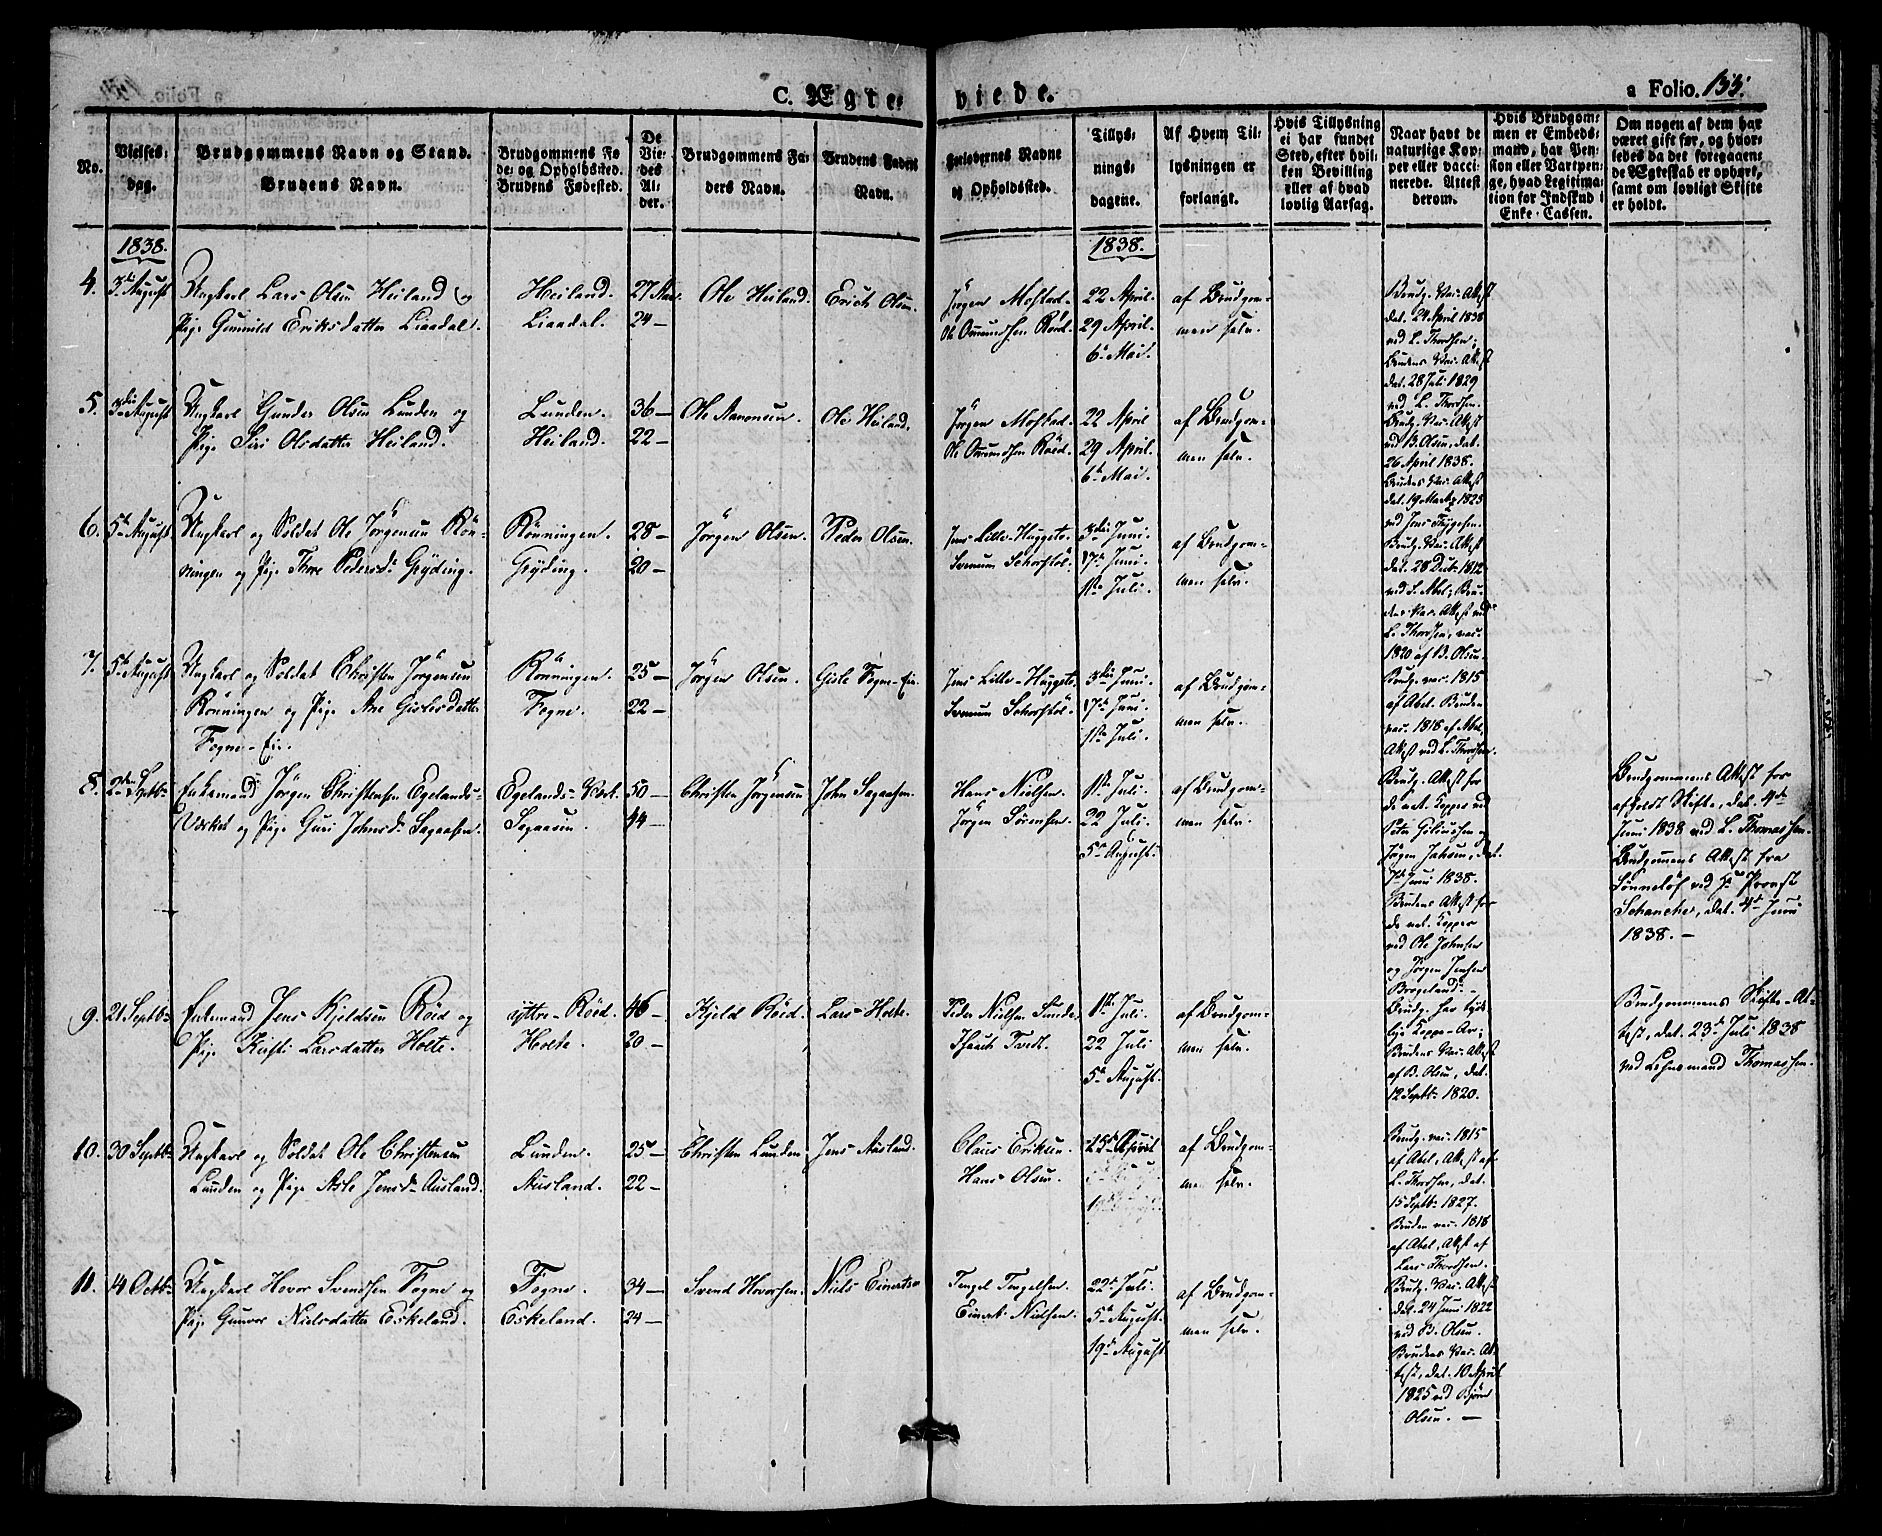 C. Ægte-viede.
a Folio. 133.
No.
Vielses-dag.
Brudgommens Navn og Stand.
Brudens Navn.
Brudgommens Fø-
de- og Opholdssted.
Brudens Fødested.
De
Vie-
des
Al-
der.
Brudgommens Fa-
ders Navn.
Brudens Faders
Navn.
Forlovernes Navne
og Opholdssted.
Tillys-
nings-
dagene.
Af Hvem Til-
lysningen er
forlangt.
Hvis Tillysning
ei har fundet
Sted, efter hvil-
ken Bevilling
eller af hvad
lovlig Aarsag.
Naar havt de
naturlige Kop-
per eller vacci-
nerede. Attest
derom.
Hvis Brudgom-
men er Embeds-
mand, har Pen-
sion eller Vartpen-
ge, hvad Legitima-
tion for Indskud i
Enke-Cassen.
Om nogen af dem har
været gift før, og hvor-
ledes da det foregaaen-
de Ægteskab er ophørt,
samt om lovligt Skifte
er holdt.
1838.
1838.
4. 3die August Ungkarl Lars Olsen Heiland og
Pige Gunnild Eriksdatter Liaadal.
Heiland.
Liaadal.
27 Aar.
24 —
Ole Heiland. Erich Olsen.
Jörgen Mostad.
Ole Omundsen Röed.
22 April.
29 April.
6te Mai.
af Brudgom-
men selv.
Brudg. Vac. Attest
dat. 24 April 1838
ved L. Thordsen;
Brudens Vac. Attest
dat. 28 Juli 1829
ved L. Thordsen.
5. 3die August Ungkarl Gunder Olsen Lunden og
Pige Siri Olsdatter Heiland.
Lunden.
Heiland.
36 —
22 —
Ole Aanonsen. Ole Heiland.
Jörgen Mostad.
Ole Omundsen Röed.
22 April
29 April.
6te Mai.
af Brudgom-
men selv.
Brudg. Vac. Attest
ved B. Olsen, dat.
26 April 1838.
Brudens Vac. Attest
dat. 19 Marts 1825
ved Jens Thygesen.
6. 5te August Ungkarl og Soldat Ole Jörgensen Rön-
ningen og Pige Thore Pedersdr Gryding.
Rönningen.
Gryding.
28 —
20 —
Jörgen Olsen. Peder Olsen.
Jens Lille-Hugste.
3die Juni.
17de Juni.
1ste Juli.
af Brudgom-
men selv.
Brudg. Vac. Attest
dat. 28 Decbr 1812
ved L. Abel; Bru-
dens Vac. Attest ved
L. Thordsen, vac.
1820 af B. Olsen.
7. 5te August Ungkarl og Soldat Christen Jörgensen
Rönningen og Pige Ane Gislesdatter
Fogne-Eie.
Rönningen.
Fogne.
25 —
22 —
Jörgen Olsen. Gisle Fogne-Eie.
Jens Lille-Hugste.
3die Juni.
17de Juni.
1ste Juli.
af Brudgom-
men selv.
Brudg. vac. 1815
af Abel. Bruden
vac. 1818 af Abel,
Attest ved L. Thordsen.
8. 2den Septbr Enkemand Jörgen Christensen Egelands-
Værket og Pige Guri Johnsdr Sagaasen.
Egelands-Værk.
Sagaasen.
50 —
44 —
Christen Jörgensen John Sagaasen.
Hans Nielsen.
Jörgen Sörensen.
1ste Juli.
22 Juli.
5te August.
af Brudgom-
men selv.
Brudg. Attest for
de nat. Kopper ved
Jörgen Jahsen, dat.
7de Juni 1838.
Brudens Attest for
de nat. Kopper
ved Ole Johnsen
og Jörgen Jensen
Brogeland. —
Brudgommens Attest for
afholdt Skifte, dat. 4de
Juni 1838 ved L. Thomassen.
Brudgommens Attest fra
Sönnelöf ved Hr Provst
Schanche, dat. 4de Juni
1838. —
9. 21 Septbr Enkemand Jens Kjeldsen Röed og
Pige Kirsti Larsdatter Holte.
yttre-Röed.
Holte.
46 —
20 —
Kjeld Röed. Lars Holte.
Peder Nielsen Sunde.
Isaach Tvedt.
1ste Juli.
22 Juli
5te August.
af Brudgom-
men selv.
Brudg. har tyde-
lige Koppe-Ar;
Brudens Vac. Attest
af B. Olsen, dat.
12 Septbr 1820.
Brudgommens Skifte-At-
test, dat. 23de Juli 1838
ved Lehnsmand Thomassen.
10. 30 Septbr Ungkarl og Soldat Ole Christensen
Lunden og Pige Asle Jensdr Ausland.
Lunden.
Ausland.
25 —
22 —
Christen Lunden Jens Ausland.
Claus Eriksen.
Hans Olsen.
af Brudgom-
men selv.
Brudg. vac. 1815
af Abel, Attest af
L. Thordsen, dat.
15 Septbr 1827.
Bruden vac. 1818
af Abel, Attest af
Lars Thordsen.
11. 14 Octbr Ungkarl Hovor Svendsen Fogne og
Pige Gunvor Nielsdatter Eskeland.
Fogne.
Eskeland.
34 —
24 —
Svend Hovorsen. Niels Einertsen
Tengel Tengelsen.
Einert Nielsen.
22de Juli.
5te August.
19de August.
af Brudgom-
men selv.
Brudg. Vac. Attest
dat. 24 Juni 1822
ved B. Olsen.
Brudens Vac. At-
test, dat. 10 April
1825 ved Björn
Olsen. —